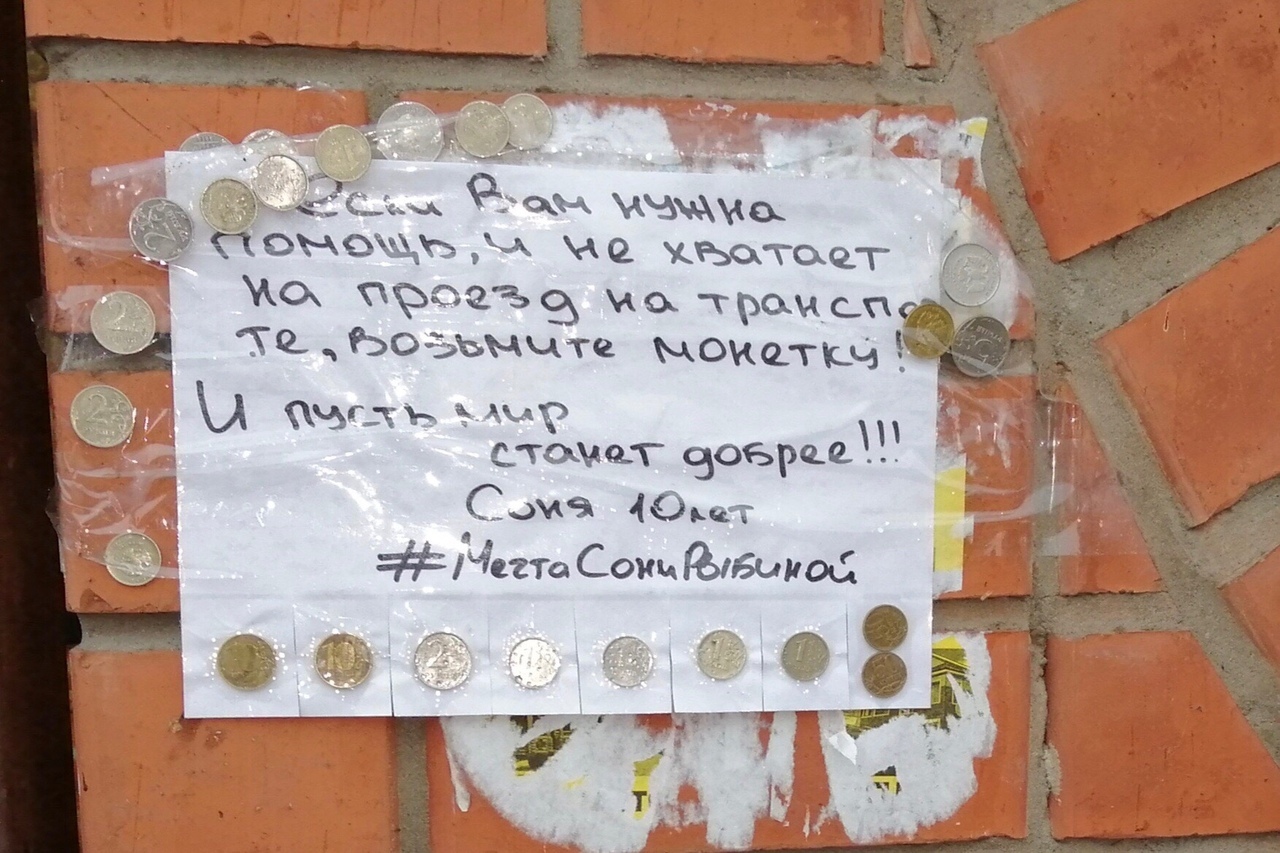 Если Вам нужна
помощь, и не хватает
на проезд на транспо
те, возьмите монетку!
И пусть мир
станет добрее!!!
Соня 10 лет
#МечтаСониРыбиной